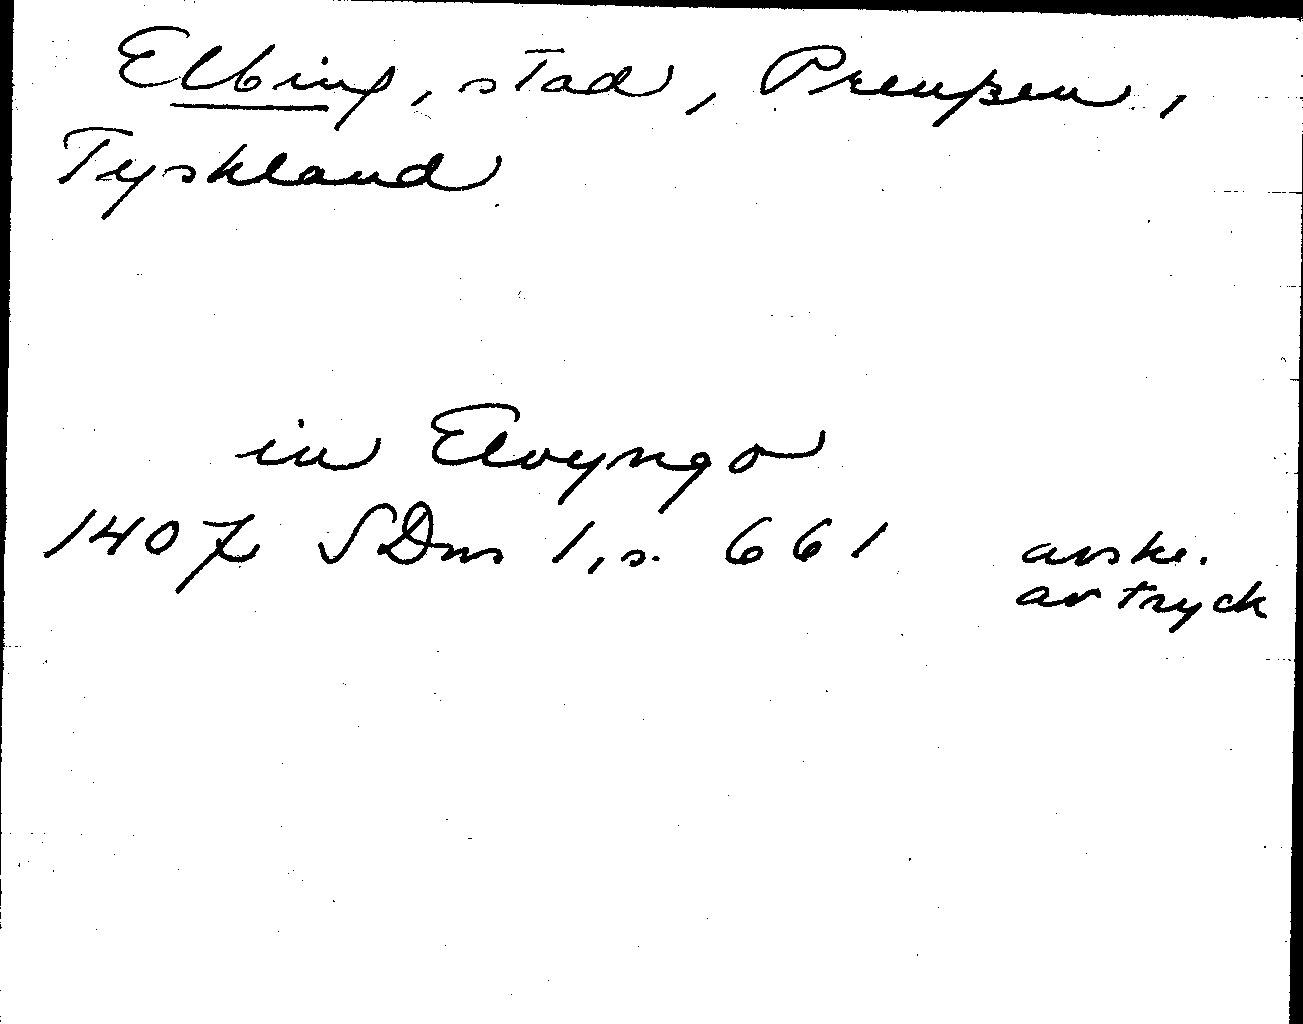 Elbing, stad, Preußen,
Tyskland
in Elvyngo
1407 SDns 1, s. 661 avskr.
av tryck